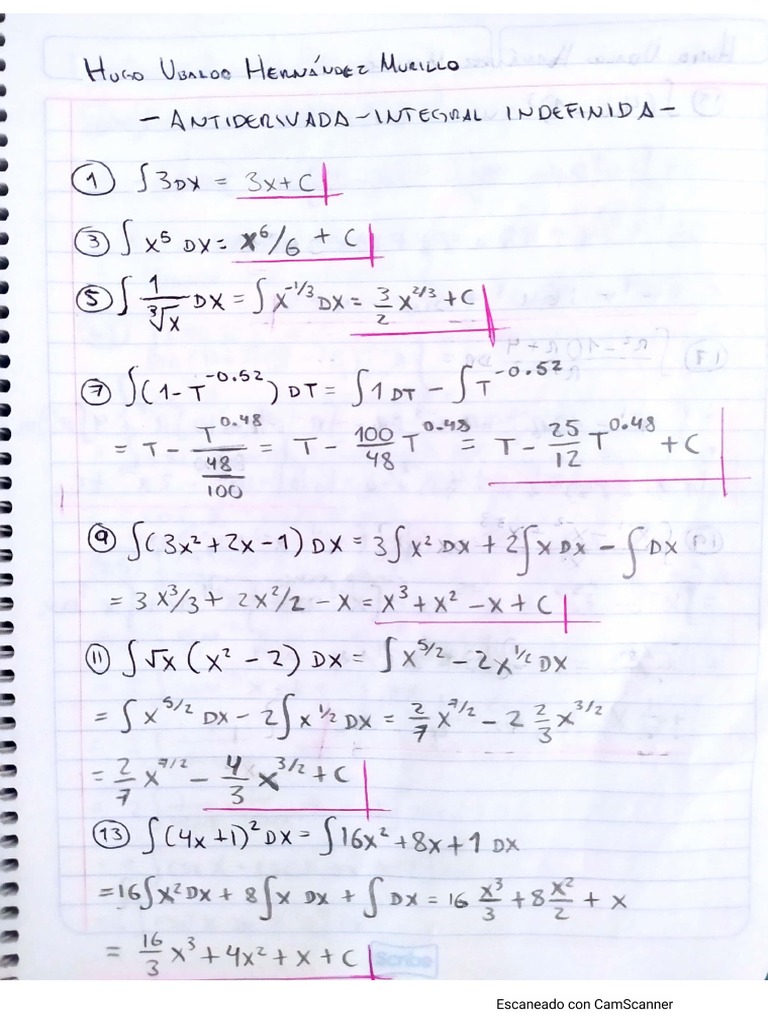 HUGO UBALDO HERNÁNDEZ MURILLO
- ANTIDERIVADA - INTEGRAL INDEFINIDA -
① ∫3DX = 3X + C
③ ∫X⁵ DX = X⁶/6 + C
⑤ ∫ 1/∛X DX = ∫X^(-1/3) DX = 3/2 X^(2/3) + C
⑦ ∫(1 - T^(-0.52)) DT = ∫1 DT - ∫T^(-0.52)
= T - T^(0.48)/(48/100) = T - 100/48 T^(0.48) = T - 25/12 T^(0.48) + C
⑨ ∫(3X² + 2X - 1) DX = 3∫X² DX + 2∫X DX - ∫DX
= 3X³/3 + 2X²/2 - X = X³ + X² - X + C
⑪ ∫√X (X² - 2) DX = ∫X^(5/2) - 2X^(1/2) DX
= ∫X^(5/2) DX - 2∫X^(1/2) DX = 2/7 X^(7/2) - 2 2/3 X^(3/2)
= 2/7 X^(7/2) - 4/3 X^(3/2) + C
⑬ ∫(4X + 1)² DX = ∫16X² + 8X + 1 DX
= 16∫X² DX + 8∫X DX + ∫DX = 16 X³/3 + 8 X²/2 + X
= 16/3 X³ + 4X² + X + C
Scribe
Escaneado con CamScanner